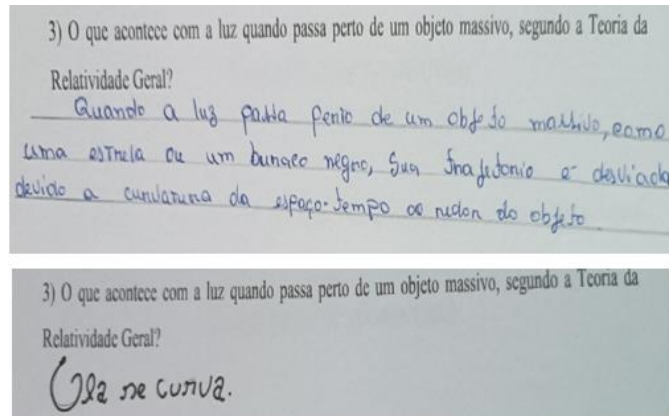 3) O que acontece com a luz quando passa perto de um objeto massivo, segundo a Teoria da
Relatividade Geral?
Quando a luz passa perto de um objeto massivo, como
uma estrela ou um buraco negro, sua trajetoria é desviada
devido a curvatura da espaço-tempo ao redor do objeto
3) O que acontece com a luz quando passa perto de um objeto massivo, segundo a Teoria da
Relatividade Geral?
Ela se curva.